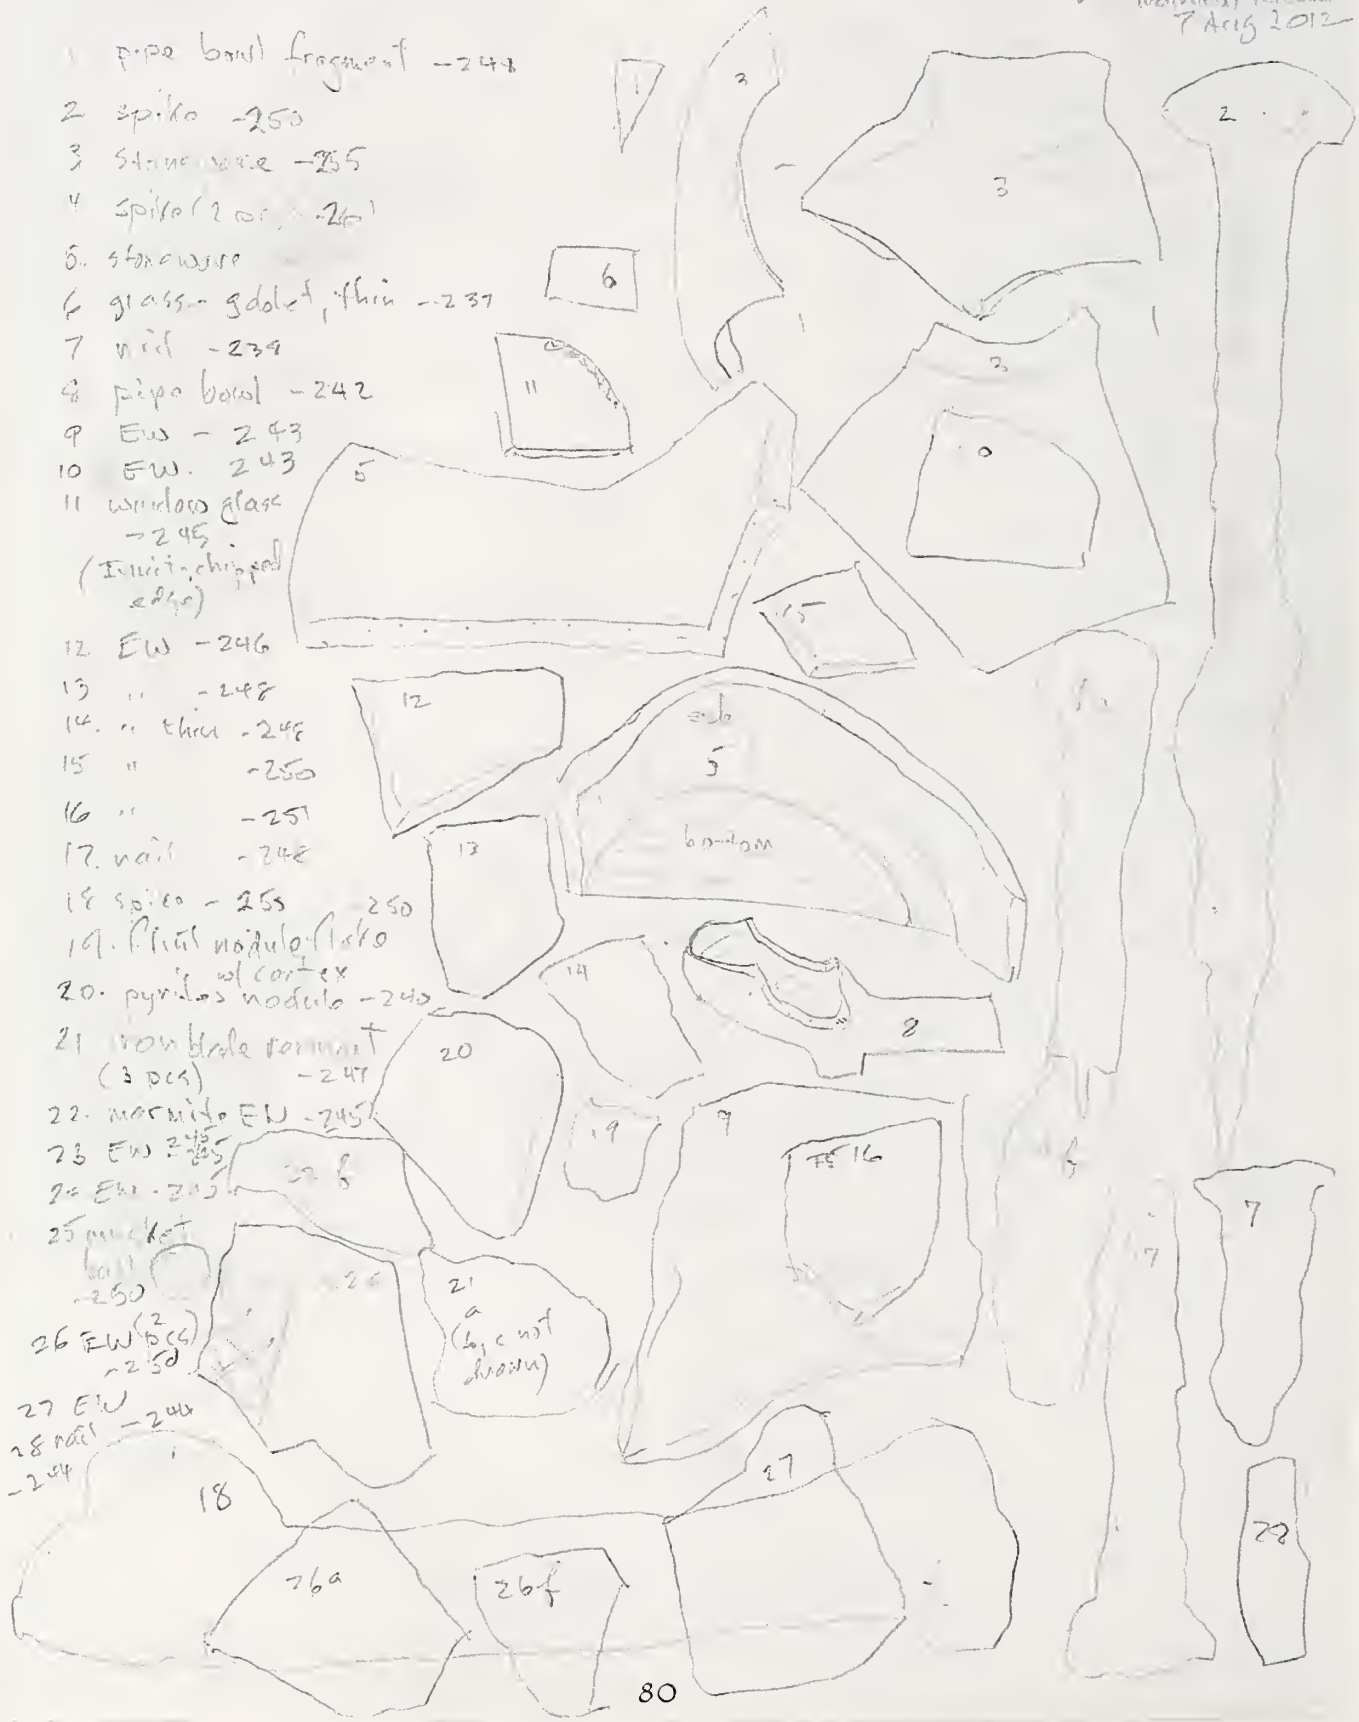 7 Aug 2012
1 pipe bowl fragment -248
2 spike -250
3 Stoneware -255
4 spike (2
5. stoneware
6 glass - goblet, thin -237
7 nail -239
8 pipe bowl -242
9 EW - 243
10 EW. 243
11 window glass
-245
(Inuit-chipped
edge)
12 EW -246
13 " -248
14. " thin -248
15 " -250
16 " -251
17. nail -248
18 spike - 255
250
19. flint nodule flake
w/ cortex
20. pyrites nodule -240
21 iron blade remnant
(3 pcs) -247
22. marmite EW -245
23 EW 245
24 EW - 245
25 musket
ball
-250
26 EW (2
pcs)
-250
27 EW
-244
28 nail
-244
1
3
2
3
6
3
11
5
15
12
5
bottom
13
14
8
20
19
9
16
7
22 b
21
a
(b, c not
drawn)
7
27
18
28
26a
26b
80